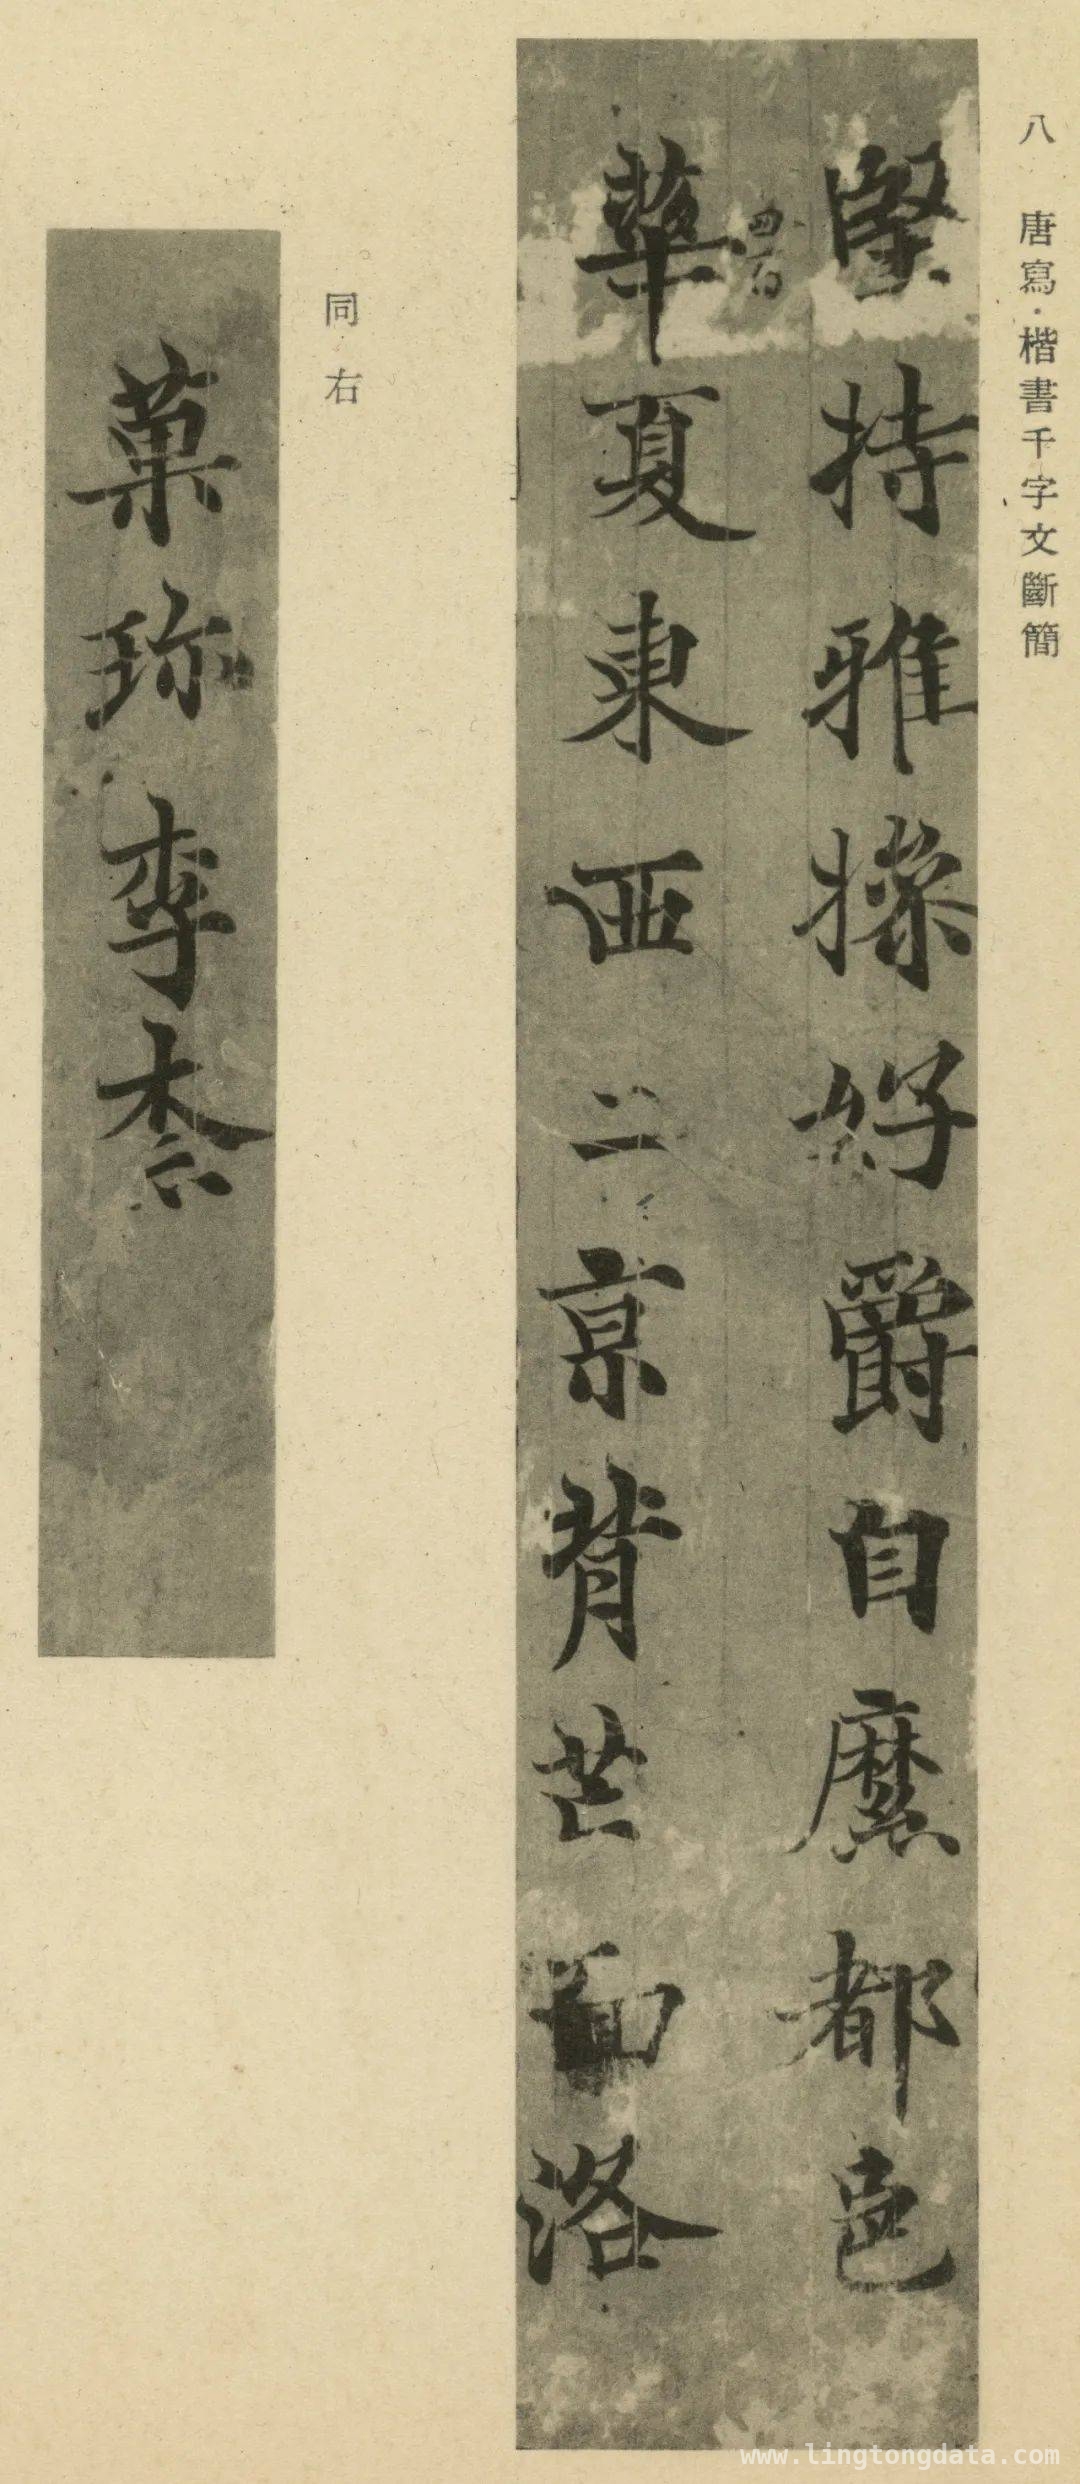 八 唐寫・楷書千字文斷簡
堅持雅操好爵自縻都邑
四百
華夏東西二京背芒面洛
同右
菓珎李柰
www.lingtongdata.com